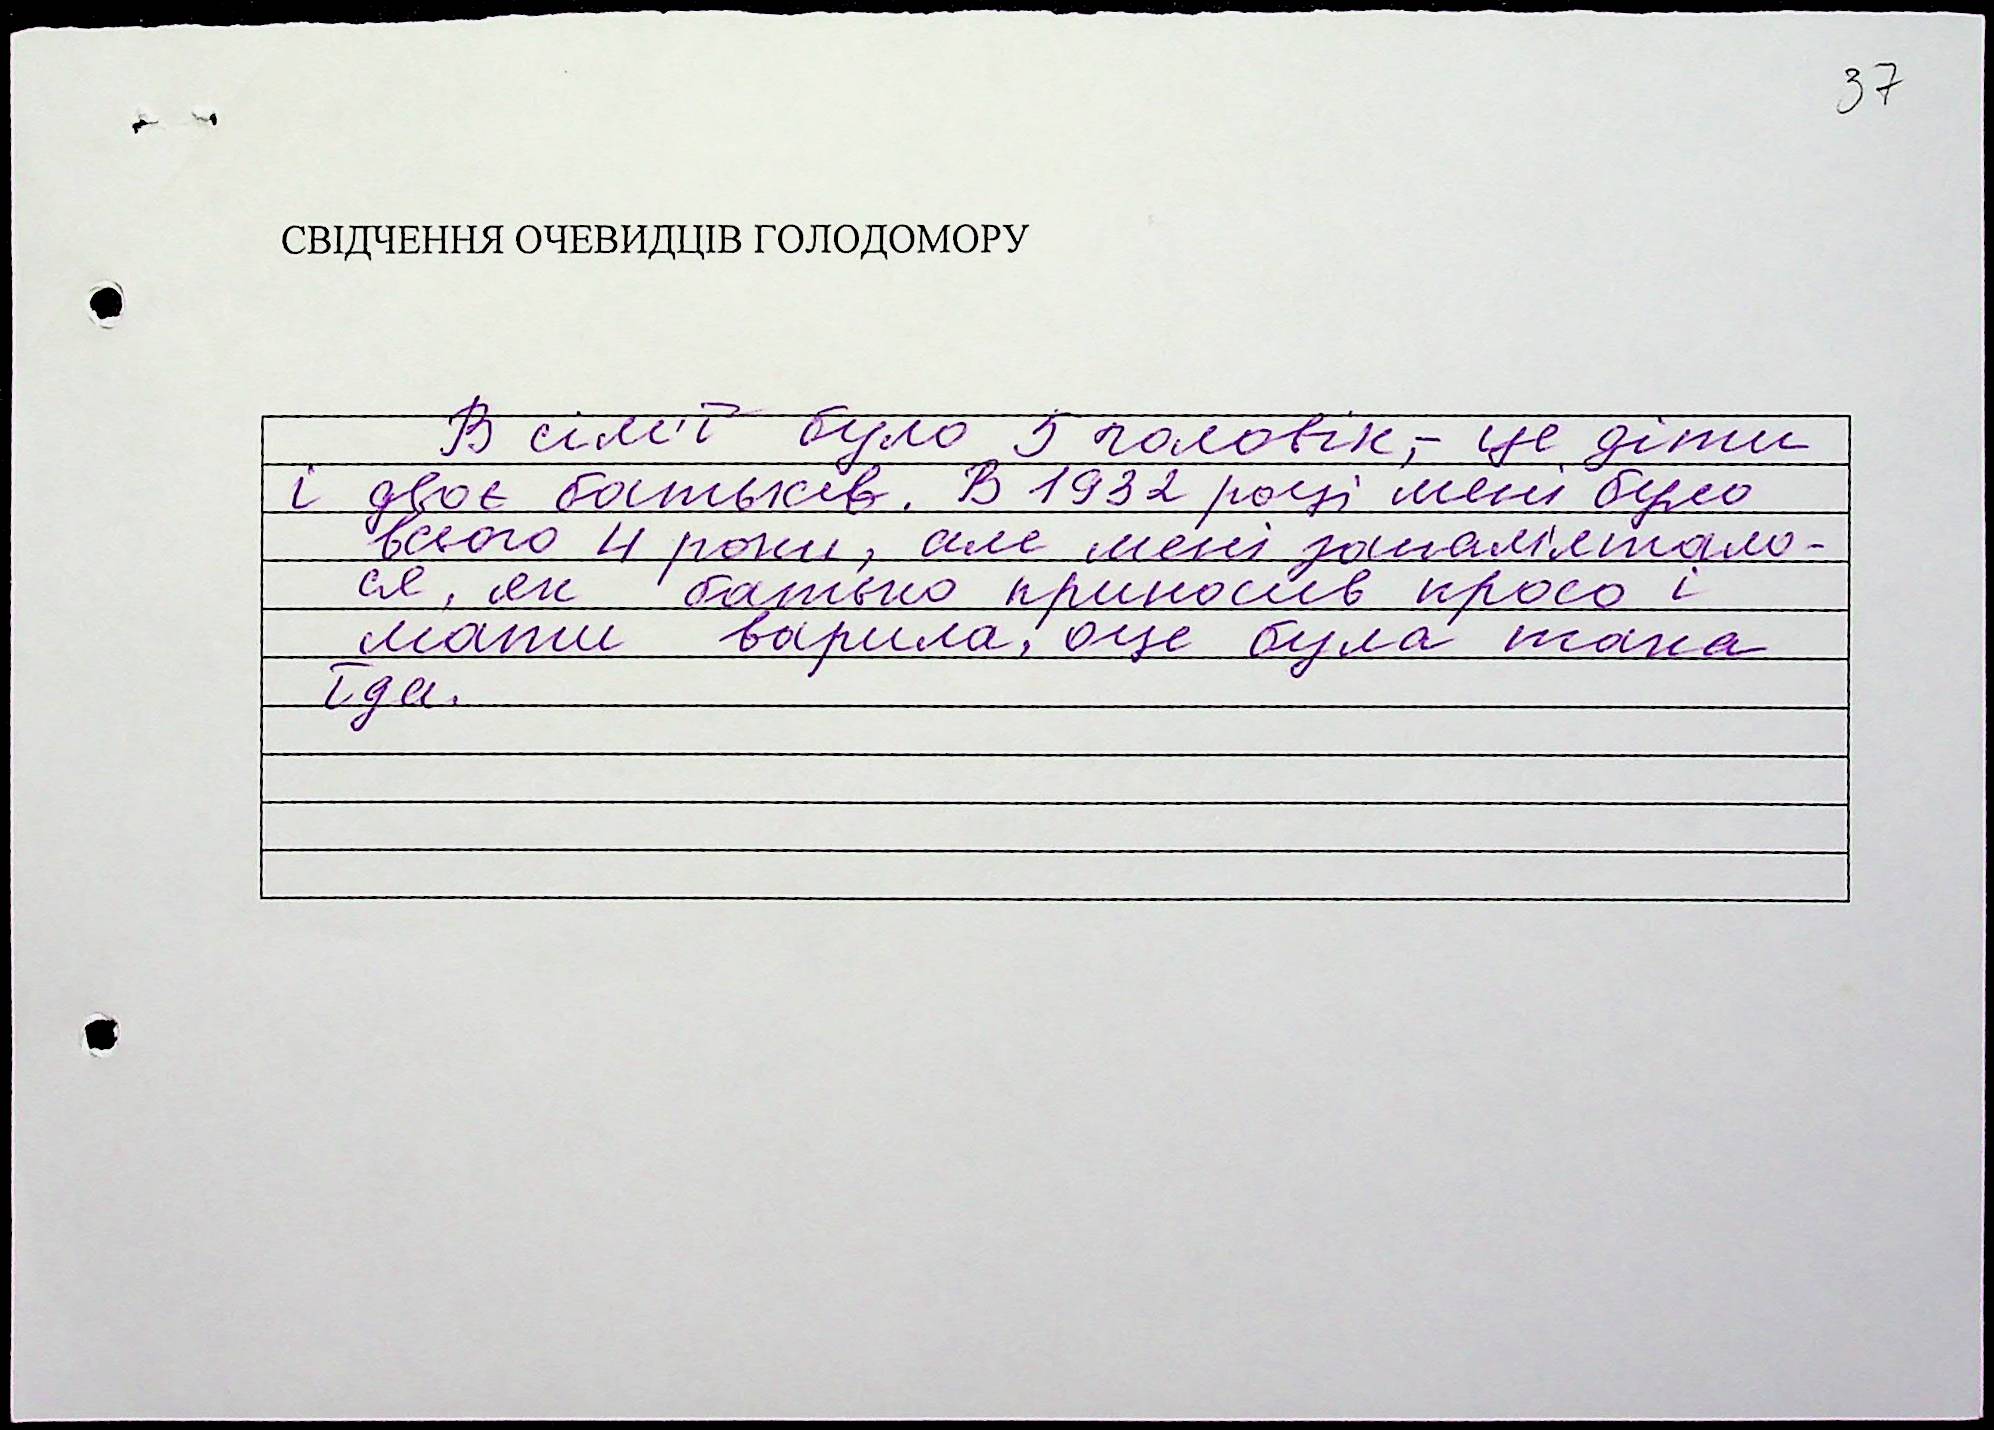 37
СВІДЧЕННЯ ОЧЕВИДЦІВ ГОЛОДОМОРУ
В сім'ї було 5 чоловік, - це діти
і двоє батьків. В 1932 році мені було
всього 4 роки, але мені запам'ятало-
ся, як батько приносив просо і
мати варила, оце була така
їда.